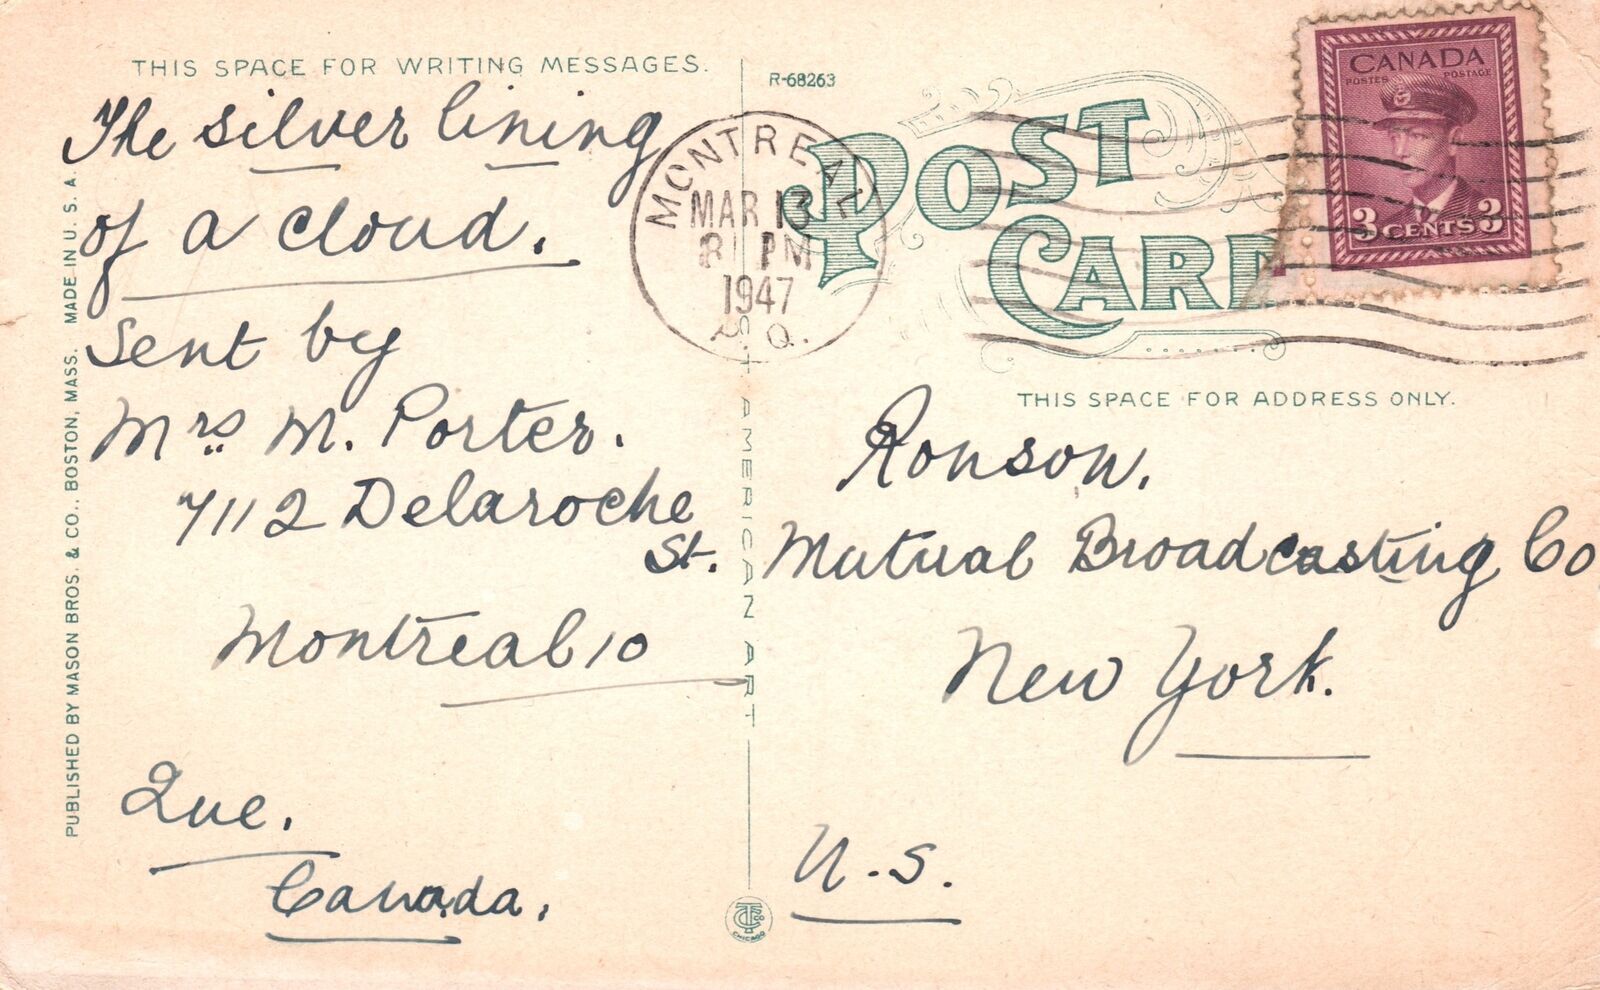 THIS SPACE FOR WRITING MESSAGES.
The silver lining
of a cloud.
Sent by
Mrs M. Porter.
7112 Delaroche
St.
Montreal 10
Que.
Canada.
PUBLISHED BY MASON BROS. & CO., BOSTON, MASS. MADE IN U. S. A.
R-68263
POST CARD
MONTREAL
MAR 13
PM
1947
P.Q.
CANADA
POSTES POSTAGE
3 CENTS 3
AMERICAN ART
THIS SPACE FOR ADDRESS ONLY.
Ronson,
Mutual Broadcasting Co
New York.
U.S.
CHICAGO